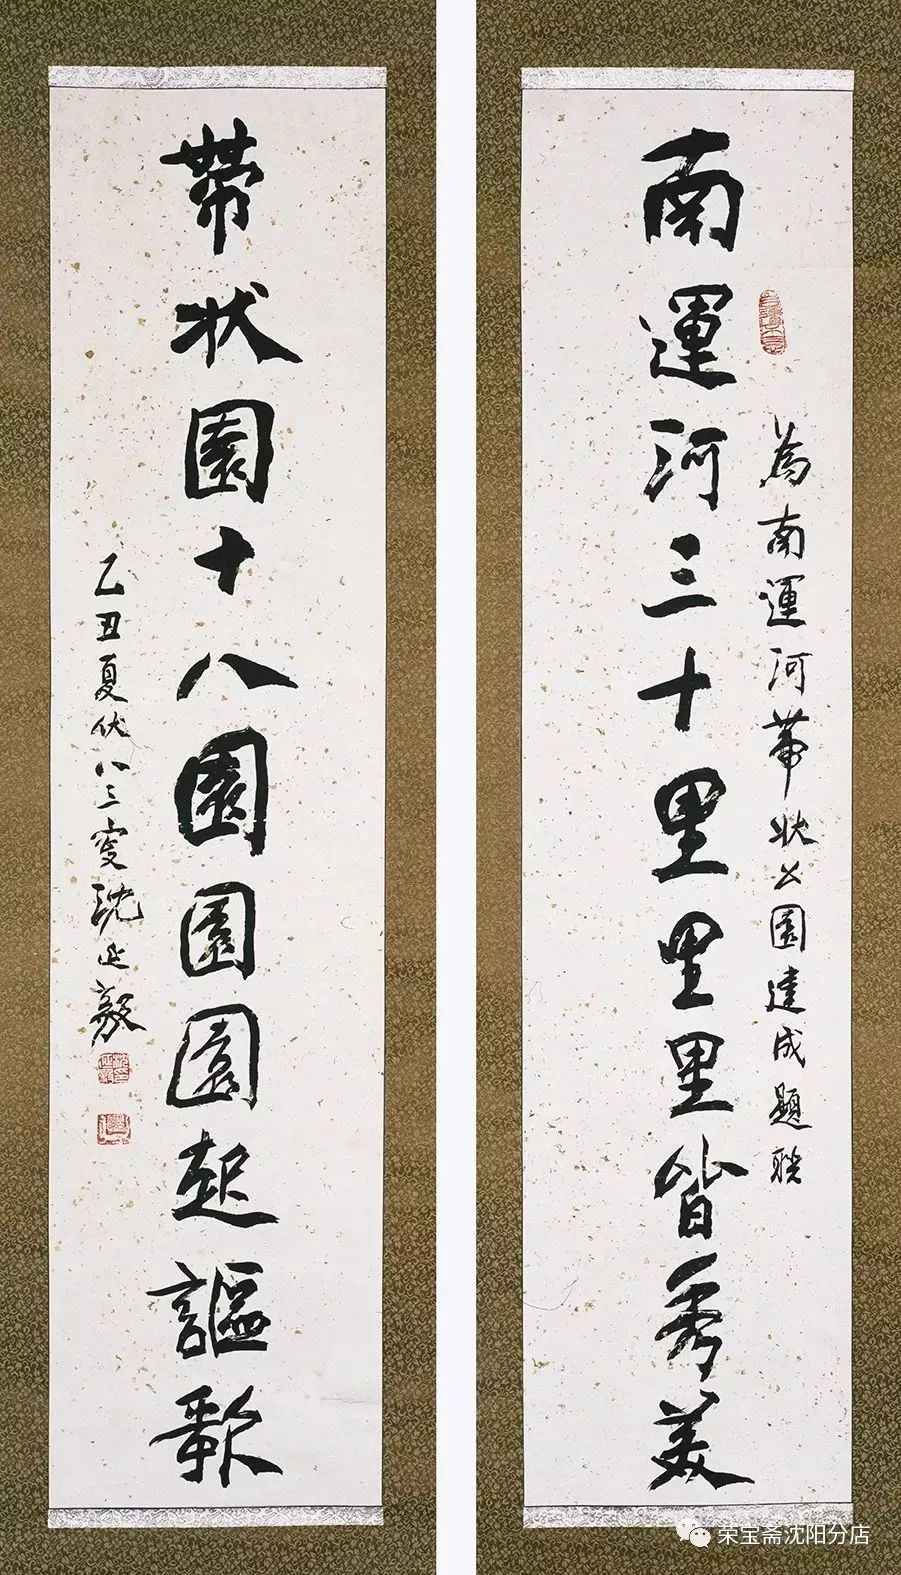 為南運河帶狀公園建成題聯
南運河三十里里里皆秀美
帶狀園十八園園園起謳歌
乙丑夏伏八三叟沈延毅
荣宝斋沈阳分店